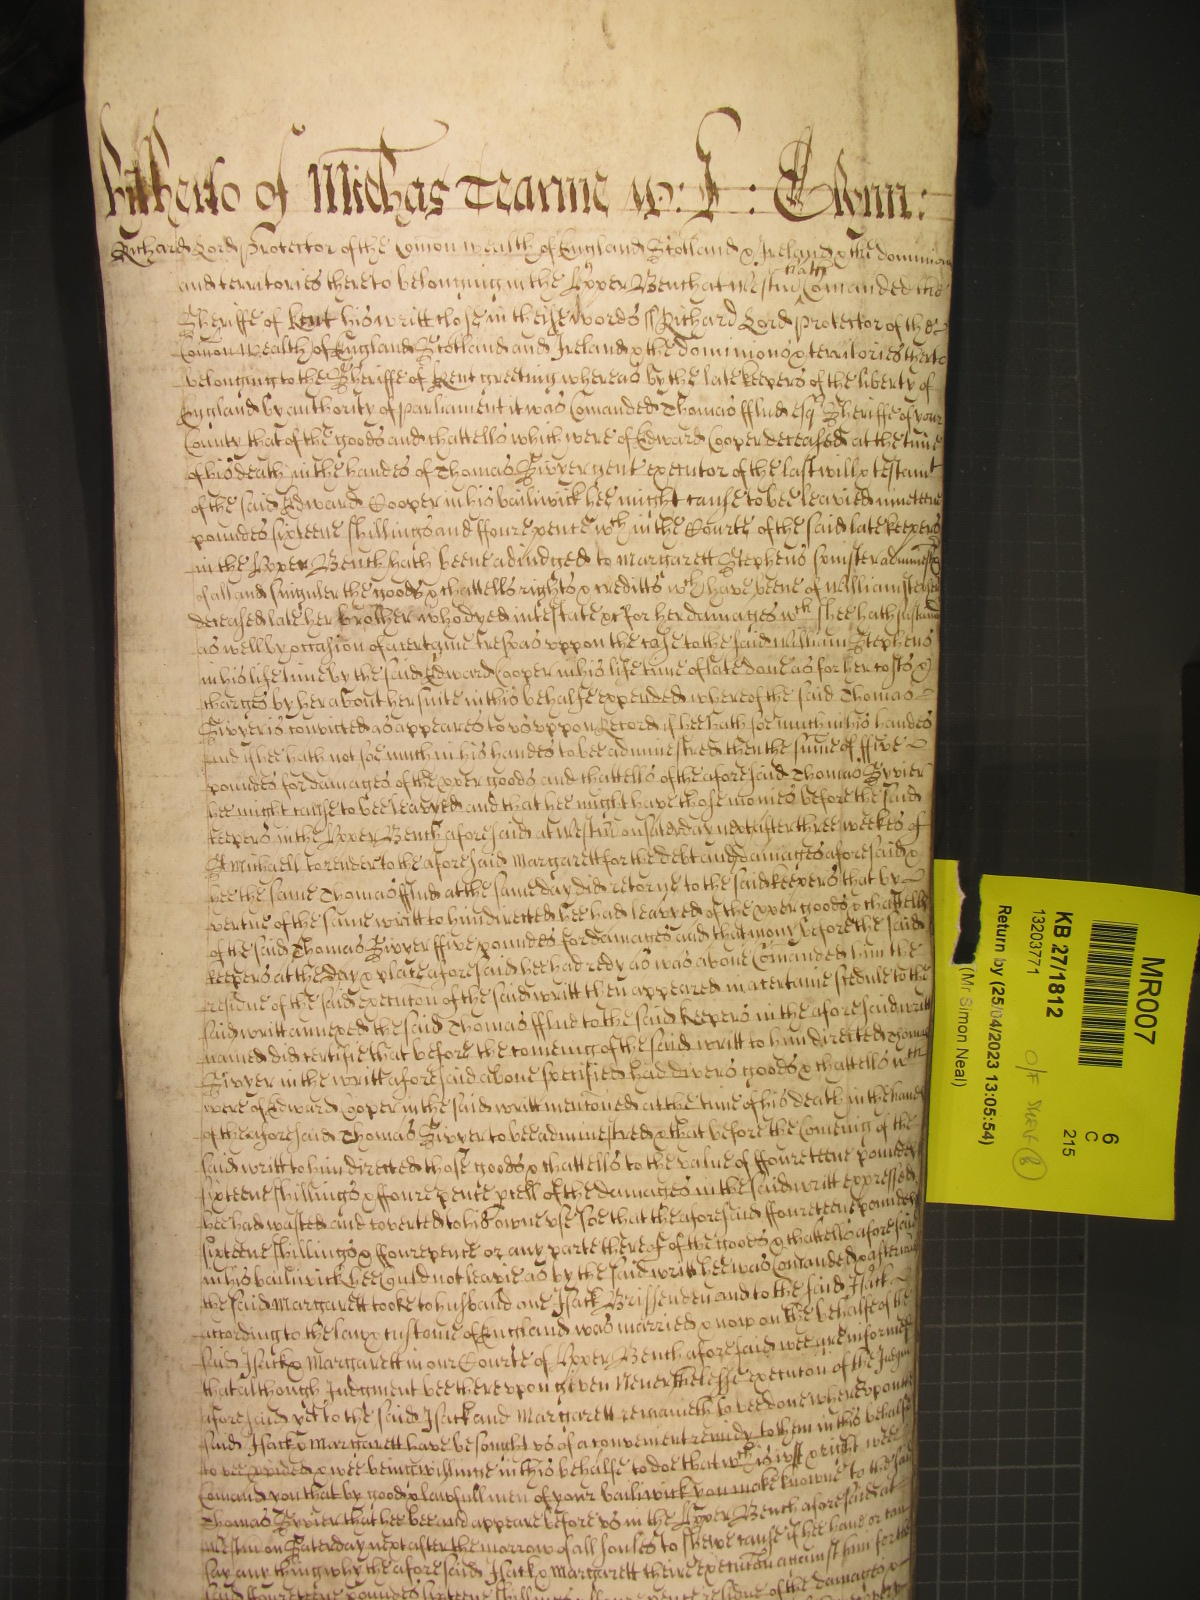 hitherto of Michas Tearme w: J: Glynn:
Richard Lord Protector of the Comon wealth of England Scotland & Ireland & the dominions
and territories thereto belonging in the Upper Bench at Westm hath Comanded the
Sheriffe of Kent his writt close in these words ss Richard Lord Protector of the
Comon wealth of England Scotland and Ireland & the dominions & territories thereto
belonging to the Sheriffe of Kent greeting whereas by the late keepers of the liberty of
England by authority of parliament it was Comanded Thomas fflud esq Sheriffe of your
County that of the goods and chattells which were of Edward Cooper deceased at the time
of his death in the handes of Thomas gent executor of the last will & testamt
of the said Edward Cooper in his bailiwick hee might cause to bee leavied nineteene
poundes sixteene shillings and ffoure pence wch in the Courte of the said late keepers
in the Upper Bench hath beene adiudged to Margarett Stephens spinster
of all and singuler the goods & chattells rights & creditts wch have beene of William Stephens
deceased late her brother who dyed intestate &c for her damages wch shee hath sustained
as well by occasion of a certaine trespas uppon the case to the said William Stephens
in his life time by the said Edward Cooper in his life time of late done as for her costs &
charges by her about her suite in this behalfe expended whereof the said Thomas
is convicted as appeares to us uppon Record if hee hath soe much in his handes
And if hee hath not soe much in his handes to bee administred then the sume of ffive
poundes for damages of the xper goods and chattells of the aforesaid Thomas
hee might cause to bee leavyed and that hee might have those monies before the said
keepers in the Upper Bench aforesaid at Westm on Saterday next after three weekes of
St Michaell to render to the aforesaid Margarett for the debt and damages aforesaid &
hee the same Thomas fflud at the same day did retorne to the said keepers that by
vertue of the same writt to him directed hee had leavyed of the xper goods & chattells
of the said Thomas ffive poundes for damages and that mony before the said
keepers at the day & place aforesaid hee had redy as was above Comanded him the
residue of the said execution of the said writt then appeared in a certaine scedule to the
said writt annexed the said Thomas fflud to the said keepers in the aforesaid writt
named did certifie that before the comeing of the said writt to him directed Thomas
in the writt aforesaid above specified had divers goods & chattells wch
were of Edward Cooper in the said writt mentoned at the time of his death in the handes
of the aforesaid Thomas to bee administred & that before the Comeing of the
said writt to him directed those goods & chattells to the value of ffoureteene poundes
sixteene shillings & ffoure pence pcell of the damages in the said writt expressed
hee had wasted and coverted to his owne use soe that the aforesaid ffoureteene poundes
sixteene shillings & ffoure pence or any parte thereof of the goods & chattells aforesaid
in his bailiwick hee Could not leavie as by the said writt hee was Comanded & afterward
the said Margarett tooke to husband one Isack Brissenden and to the said Isack
according to the law & custome of England was married & now on the behalfe of the
said Isack & Margarett in our Courte of Upper Bench aforesaid wee are informed
that although Judgment bee thereupon given Neverthelesse execution of the Judgmt
aforesaid yet to the said Isack and Margarett remaineth to bee done whereupon the
said Isack & Margarett have besought us of a convenient remidy to them in this behalfe
to bee pvided & wee being willinge in this behalfe to doe that wch is just & right wee
Comand you that by good & lawfull men of your bailiwick you make knowne to the said
Thomas that hee bee and appeare before us in the Upper Bench aforesaid at
Westm on Saterday next after the morrow of all soules to shewe cause if hee have or can
say any thing why the aforesaid Isack & Margarett their execution against him for the
said ffoureteene poundes sixteene shillings pence residue of the damages
MR007
6
C
215
KB 27/1812
13203771
O/F
Return by (25/04/2023 13:05:54)
(Mr Simon Neal)